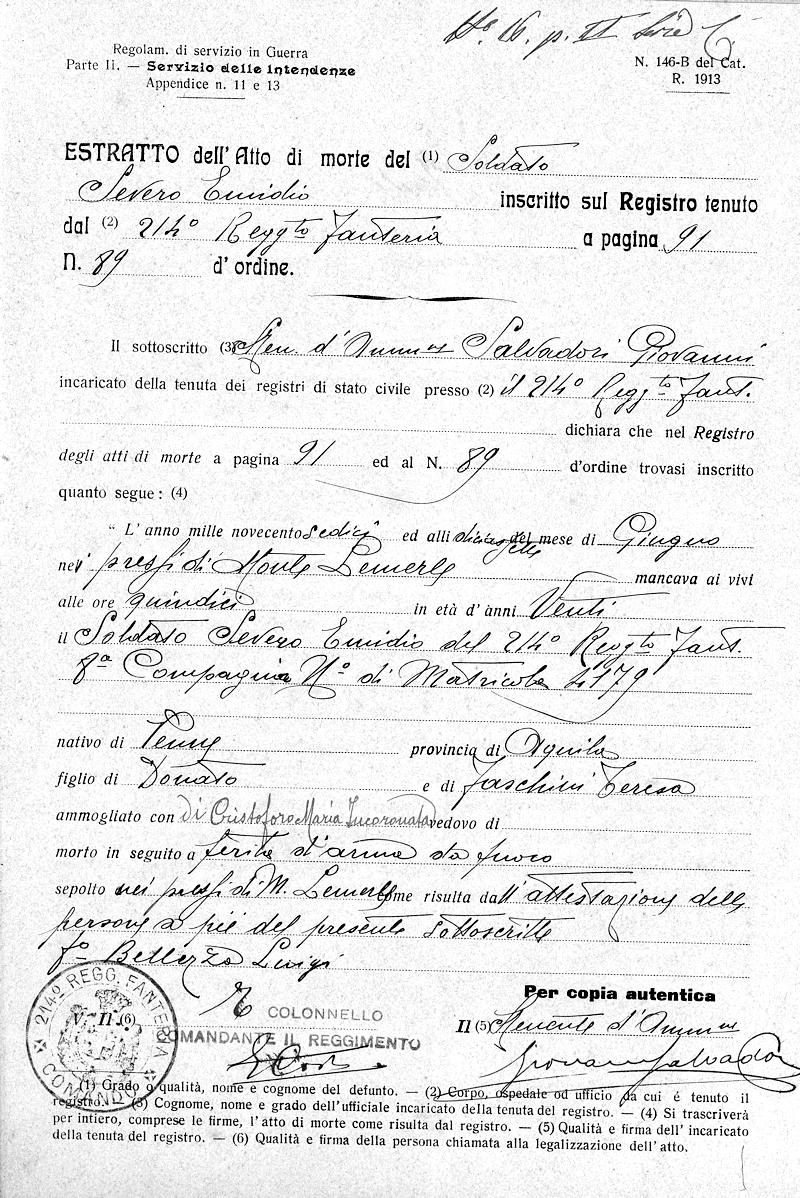 N° 16. p. II Serie C.
Regolam. di servizio in Guerra
Parte II. — Servizio delle Intendenze
Appendice n. 11 e 13
N. 146-B del Cat.
R. 1913
ESTRATTO dell'Atto di morte del (1) Soldato
Severo Emidio inscritto sul Registro tenuto
dal (2) 214° Reggto Fanteria a pagina 91
N. 89 d'ordine.
Il sottoscritto (3) d'Amm.ne Salvadori Giovanni
incaricato della tenuta dei registri di stato civile presso (2) il 214° Reggto Fant.
dichiara che nel Registro
degli atti di morte a pagina 91 ed al N. 89 d'ordine trovasi inscritto
quanto segue: (4)
“ L'anno mille novecento sedici ed alli diciassette del mese di Giugno
nei pressi di Monte Lemerle mancava ai vivi
alle ore quindici in età d'anni Venti
il Soldato Severo Emidio del 214° Reggto Fant.
8a Compagnia N° di Matricola 4179
nativo di provincia di Aquila
figlio di Donato e di Faschini Teresa
ammogliato con di Cristoforo Maria Incoronata vedovo di
morto in seguito a ferita d'arma da fuoco
sepolto nei pressi di M. Lemerle come risulta dall'attestazione delle
persone a piè del presente sottoscritte
f° Luigi
Per copia autentica
214° REGG. FANTERIA
COMANDO
V. Il (6)
IL COLONNELLO
COMANDANTE IL REGGIMENTO
Il (5) Tenente d'Amm.ne
Giovanni Salvadori
(1) Grado o qualità, nome e cognome del defunto. — (2) Corpo, ospedale od ufficio da cui é tenuto il
registro. — (3) Cognome, nome e grado dell'ufficiale incaricato della tenuta del registro. — (4) Si trascriverà
per intiero, comprese le firme, l'atto di morte come risulta dal registro. — (5) Qualità e firma dell'incaricato
della tenuta del registro. — (6) Qualità e firma della persona chiamata alla legalizzazione dell'atto.